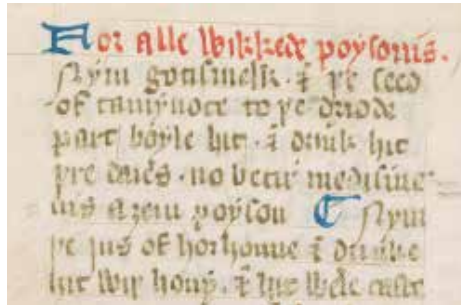 For alle wikkede poysonis.
Nym gotismelk . & þe seed
of to þe
part boyle hit . & drink hit
þre daies . no betir medisine
nis aȝein poyson ¶ Nym
þe jus of horhoune & drinke
hit wiþ hony . & hit wole caste